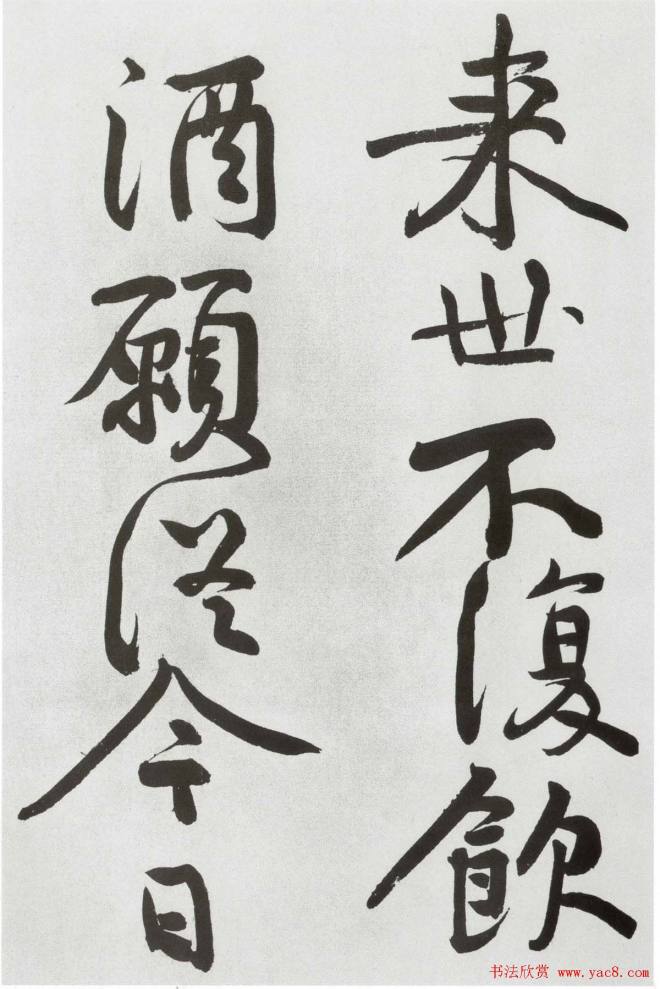 来世不復飲
酒願從今日
书法欣赏 www.yac8.com